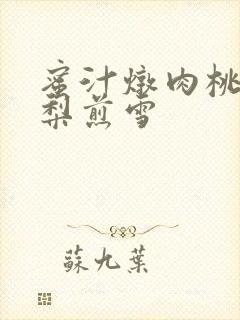 蜜汁燉肉桃
梨煎雪
蘇九葉